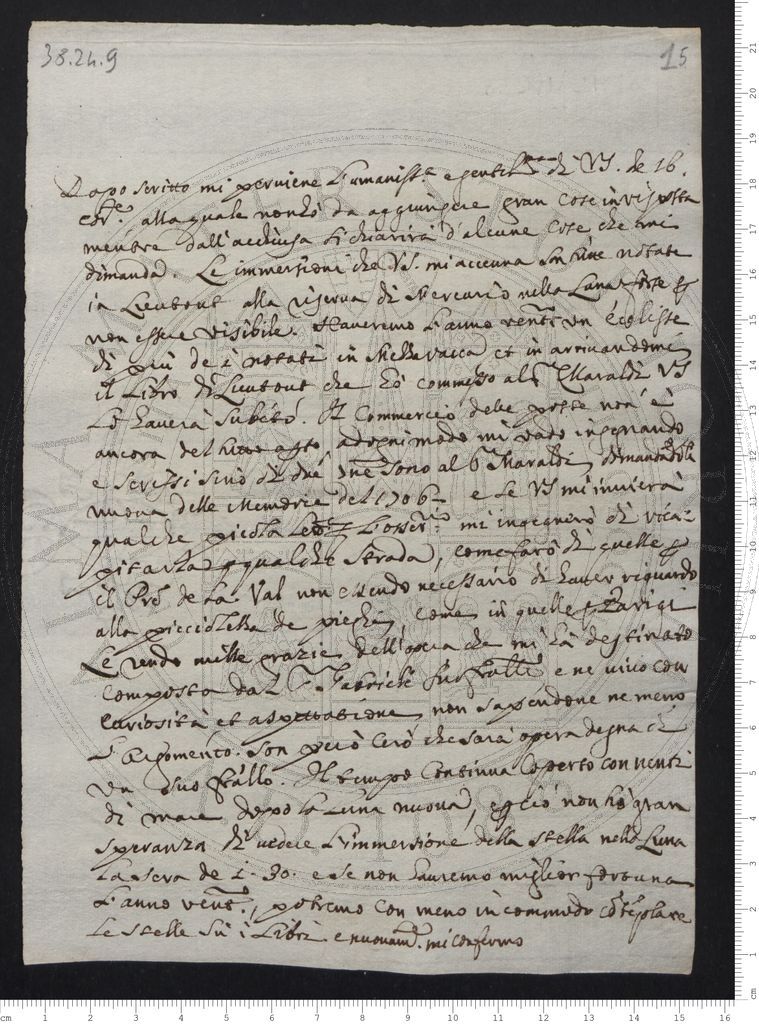 38.24.9 15
Dopo scritto mi perviene l'umaniss.ª e gentil.ma di VS. de 16.
alla quale non hò da aggiungere gran cose in risposta
mentre dall'acchiusa si chiarirà d'alcune cose che mi
dimanda. Le immersioni che VS. mi accenna notate
in Lieutout alla riserva di Mercurio nella Luna forse
non esser visibile. Haveremo l'anno vent.º un écclisse
di più de i notati in et in arrivandomi
il Libro di Lieutout che hò commesso al Sr. Maraldi VS
lo haverà subito. Il Commercio delle poste non è
ancora del ad ogni modo mi vado ingegnando
e scrissi sino di due sono al Sr. Maraldi, dimandandoli
nuova delle Memorie del 1706 e se VS mi invierà
qualche picciola mi ingegnerò di reca-
pitarla qualche strada, come farò di quelle
il Pre. de La Val non essendo necessario di haver riguardo
alla picciolezza de pieghi, come in quelle Parigi
Le rendo mille grazie dell'opera che mi hà destinato
composta dal Sr. Gabriele suo Fratello e ne vivo con
curiosità et aspettatione, non sapendone ne meno
l'Argomento. Son però certo che sarà opera degna di
un suo frallo. Il tempo continua coperto con venti
di mare dopo la Luna nuova, e non hò gran
speranza di vedere l'immersione della stella nella Luna
la sera de i 30. e se non hauremo miglior fortuna
l'anno vent.º, potremo con meno incommodo cõtẽplare
le stelle sù i Libri. e nuovam.te mi confermo